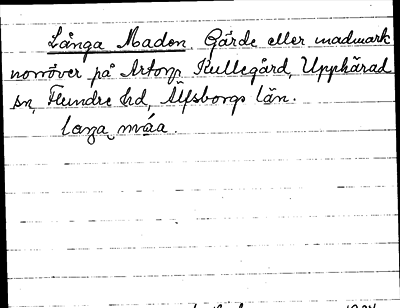 Långa Maden. Gärde eller madmark
norröver på Artorp Kullegård, Upphärad
sn, Flundre hd, Älfsborgs län.
laŋa máa.